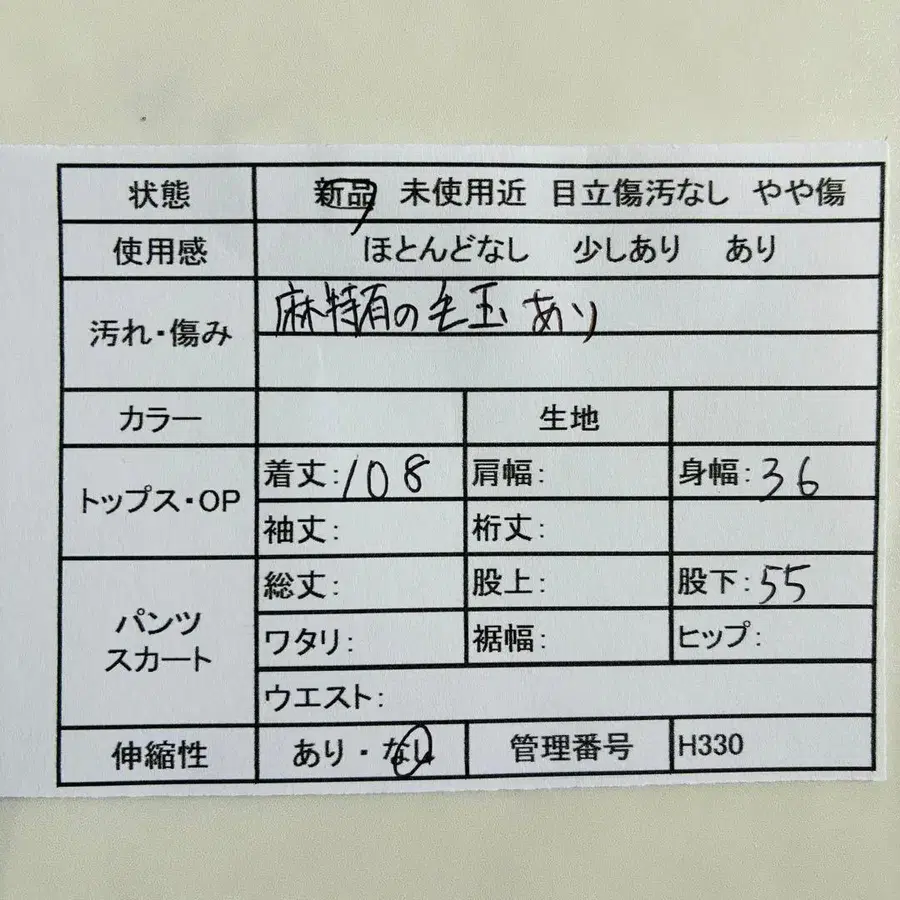 状態 新品 未使用近 目立傷汚なし やや傷
使用感 ほとんどなし 少しあり あり
汚れ・傷み 麻特有の毛玉あり
カラー 生地
トップス・OP 着丈:108 肩幅: 身幅:36
袖丈: 裄丈:
パンツ スカート 総丈: 股上: 股下:55
ワタリ: 裾幅: ヒップ:
ウエスト:
伸縮性 あり・なし 管理番号 H330